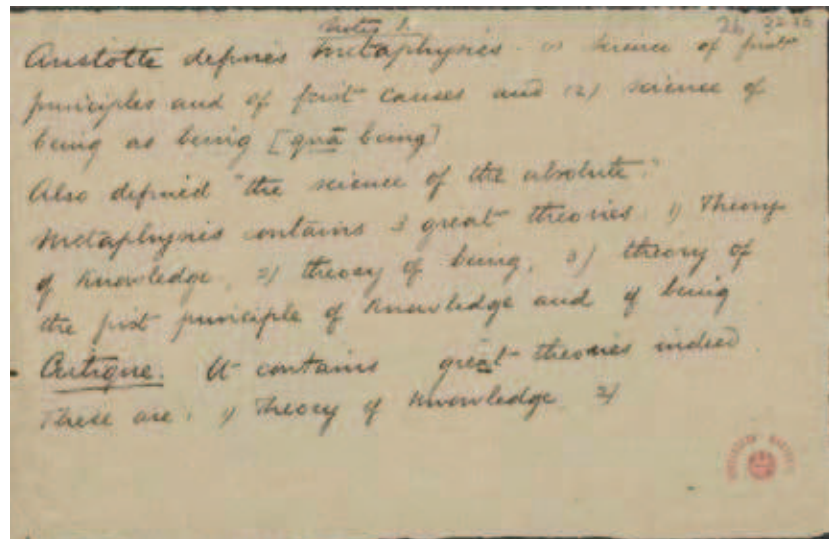 Notes 1.
26 22 73
Aristotle defines Metaphysics. 1) science of first
principles and of first causes and (2) science of
being as being [quā being]
Also defined "the science of the absolute."
Metaphysics contains 3 great theories. 1) Theory
of Knowledge, 2) theory of being, 3) theory of
the first principle of Knowledge and of being
Critique. It contains great theories indeed.
These are. 1) Theory of Knowledge 2)